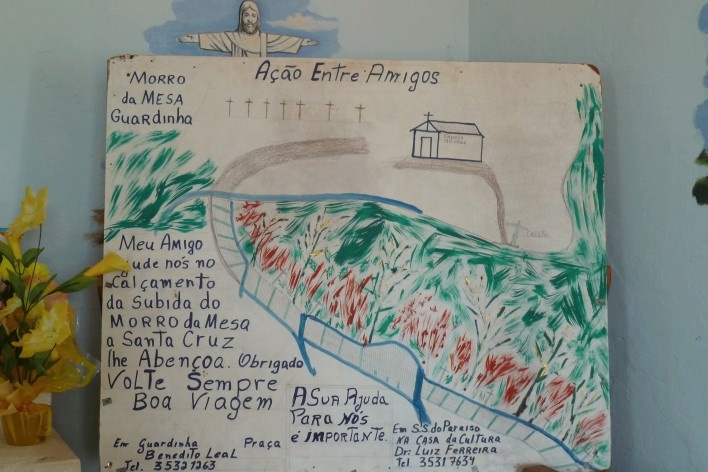 Ação Entre Amigos
Morro
da Mesa
Guardinha
Meu Amigo
Ajude nós no
Calçamento
da Subida do
Morro da Mesa
a Santa Cruz
lhe Abençoa. Obrigado
Volte Sempre
Boa Viagem
A Sua Ajuda
Para Nós
é Importante.
Em Guardinha Praça
Benedito Leal
Tel. 35321263
Em S.S. do Paraiso
Na Casa da Cultura
Dr: Luiz Ferreira
Tel. 35317634